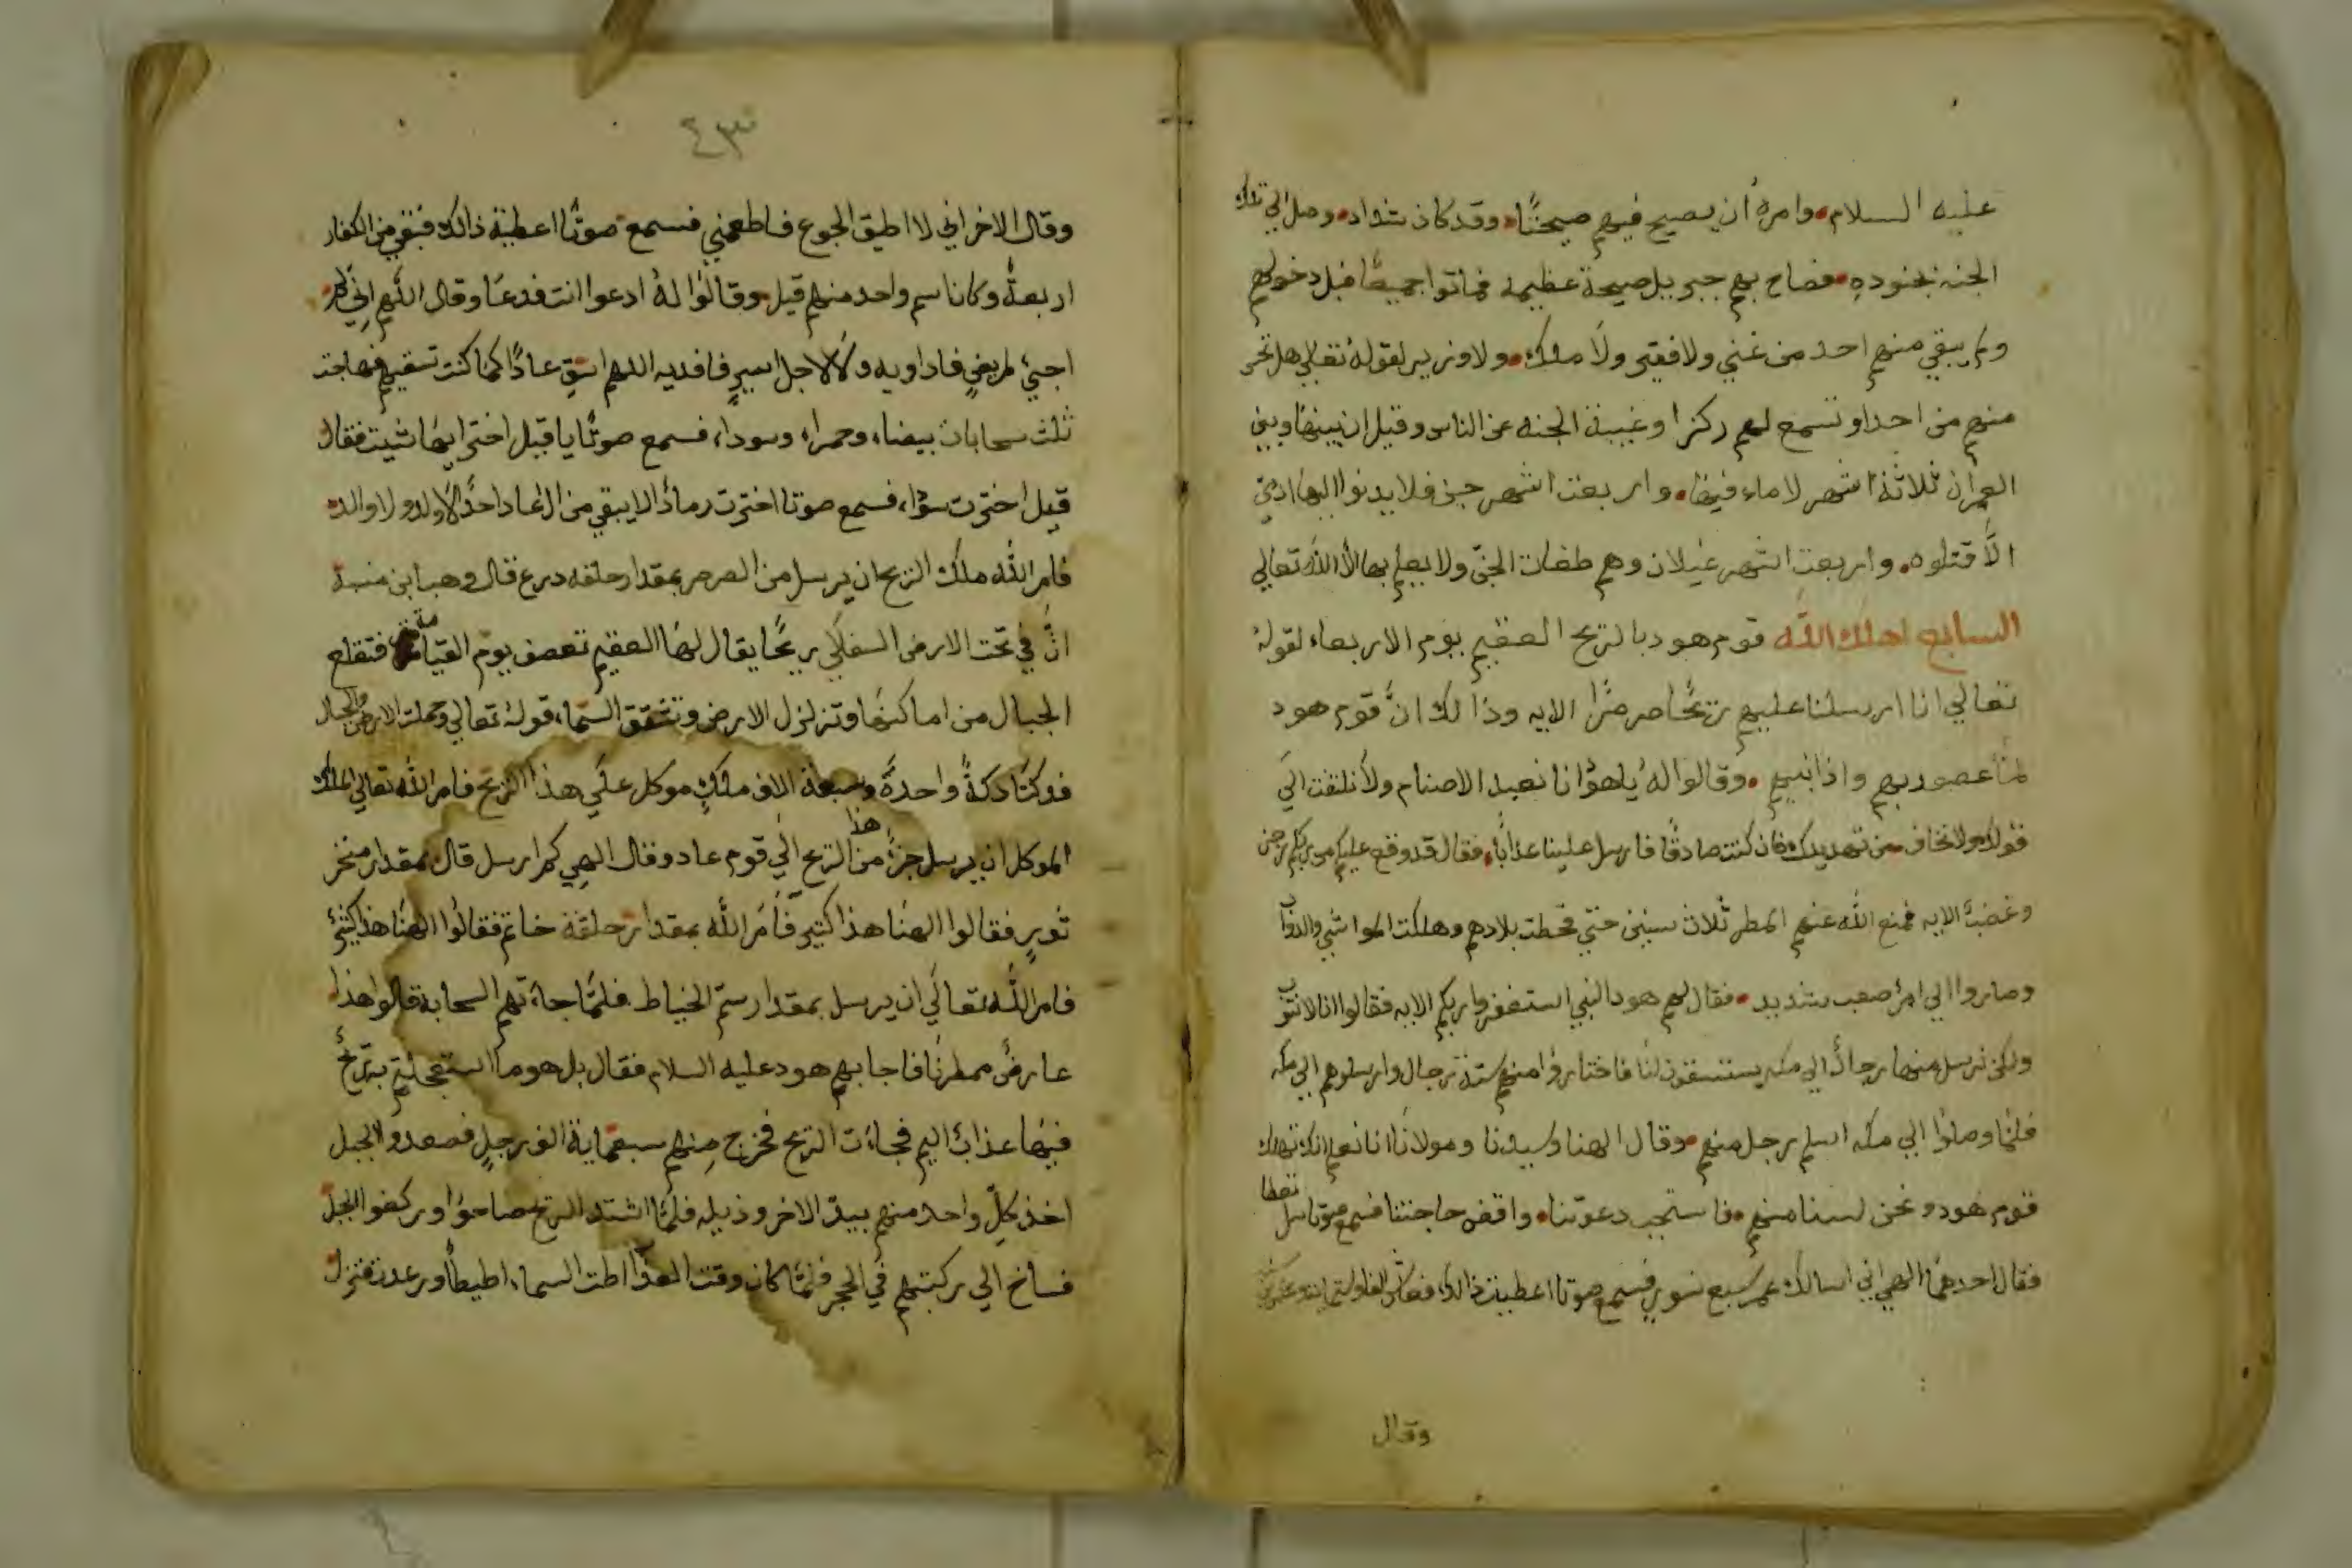 عليه السلام وامره ان يصيح فيهم صيحتا وقد كان شداد وصل الي تلك
الجنه بجنوده فصاح بهم جبريل صيحة عظيمة فماتوا جميعًا قبل دخولهم
ولم يبقي منهم احد من غني ولا فقير ولا ملك ولا وزير لقوله تعالي هل تحس
منهم من احد او تسمع لهم ركزا وغيبة الجنه عن الناس وقيل ان بينها وبين
العمران ثلاثة اشهر لا ماء فيها واربعت اشهر جن فلا يدنوا اليها ادمي
الا قتلوه واربعت اشهر غيلان وهم طغات الجن ولا يعلم بها الا الله تعالي
السابع اهلك الله قوم هود بالريح العقيم يوم الاربعاء لقوله
تعالي انا ارسلنا عليهم ريحًا صرصرًا الايه وذالك ان قوم هود
لما عصو ربهم واذا نبيهم وقالوا له يا هود انا نعبد الاصنام ولا نلتفت الي
قولك ولا نخاف من تهديدك فان كنت صادقًا فارسل علينا عذابا فقال قد وقع عليكم من ربكم رجس
وغضب الايه فمنع الله عنهم المطر ثلاث سنين حتي قحطت بلادهم وهلكت المواشي والدواب
وصاروا الي امر صعب شديد فقال لهم هود النبي استغفروا ربكم الايه فقالوا انا لا نتوب
ولكن نرسل منها رجالا الي مكه يستسقون لنا فاختاروا منهم ستة رجال وارسلوهم الي مكه
فلما وصلوا الي مكه اسلم رجل منهم وقال الهنا وسيدنا ومولانا انا نعلم انك تهلك
قوم هود ونحن لسنا منهم فاستجب دعوتنا واقض حاجتنا فسمع صوتا سل تعطا
فقال احدهما الهي اني اسالك عمر سبع نسور فسمع صوتا اعطيت ذالك
وقال
٤٣
وقال الاخر اني لا اطيق الجوع فاطعمني فسمع صوتًا اعطية ذالك فبقي من الكفار
اربعةٌ وكان اسم واحد منهم قيل وقالوا له ادعوا انت فدعا وقال اللهم اني لم
اجئ لمريضٍ فاداويه ولا لاجل اسيرٍ فافديه اللهم اسقِ عادًا كما كنت تسقيهم فهاجت
ثلث سحابات بيضاء وحمراء وسوداء فسمع صوتًا يا قيل اختر ايها شيت فقال
قيل اخترت سودا، فسمع صوتا اخترت رمادًا لا يبقي من ال عاد احدًا لا ولد ولا والد
فامر الله ملك الريح ان يرسل من الصرصر بمقدار حلقه درع قال وهب ابن منبه
انّ في تحت الارض السفلي ريحًا يقال لها العقيم تعصف يوم القيامة فتقلع
الجبال من اماكنها وتزلزل الارض وتشقق السما، قوله تعالي وحملت الارض والجبال
فدكتا دكةً واحدةً وسبعة الاف ملكٍ موكل علي هذا الريح فامر الله تعالي الملك
الموكل ان يرسل جزءً من هذا الريح الي قوم عاد وقال الهي كم ارسل قال بمقدار منخر
ثورٍ فقالوا الهنا هذا كثير فأمر الله بمقدار حلقة خاتم فقالوا الهنا هذا كثير
فامر الله تعالي ان يرسل بمقدار سم الخياط فلما جاءتهم السحابة قالوا هذا
عارض ممطرنا فاجابهم هود عليه السلام فقال بل هو ما استعجلتم به ريح
فيها عذابٌ اليم فجاءت الريح فخرج منهم سبعماية الف رجلٍ فصعدوا الجبل
اخذ كلّ واحد منهم بيد الاخر وذيله فلما اشتد الريح صاحوا وركضوا الجبل
فساخ الي ركبتهم في الحجر فلما كان وقت العذاب اطت السماء اطيطاً ورعدت فنزل